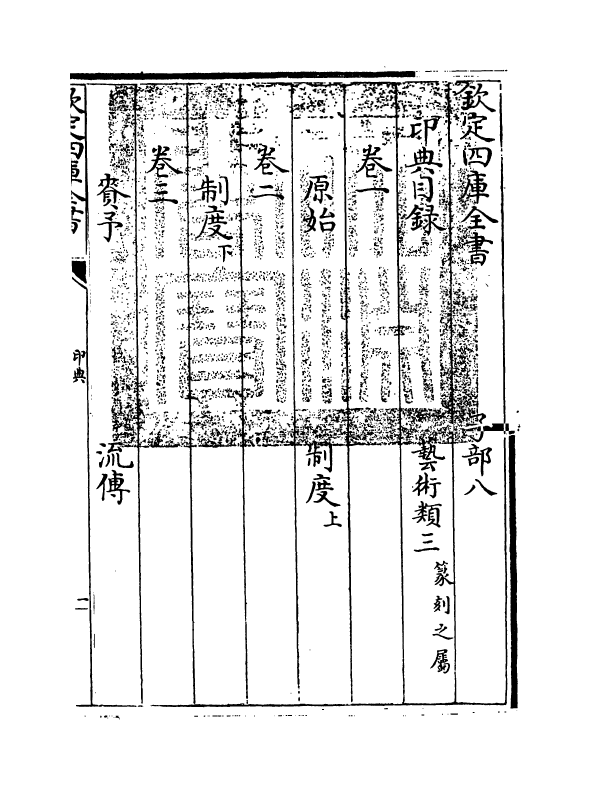 欽定四庫全書　子部八
印典目録　藝術類三篆刻之屬
卷一
原始　制度上
卷二
制度下
卷三
賚予　流傳
欽定四庫全書
印典
二